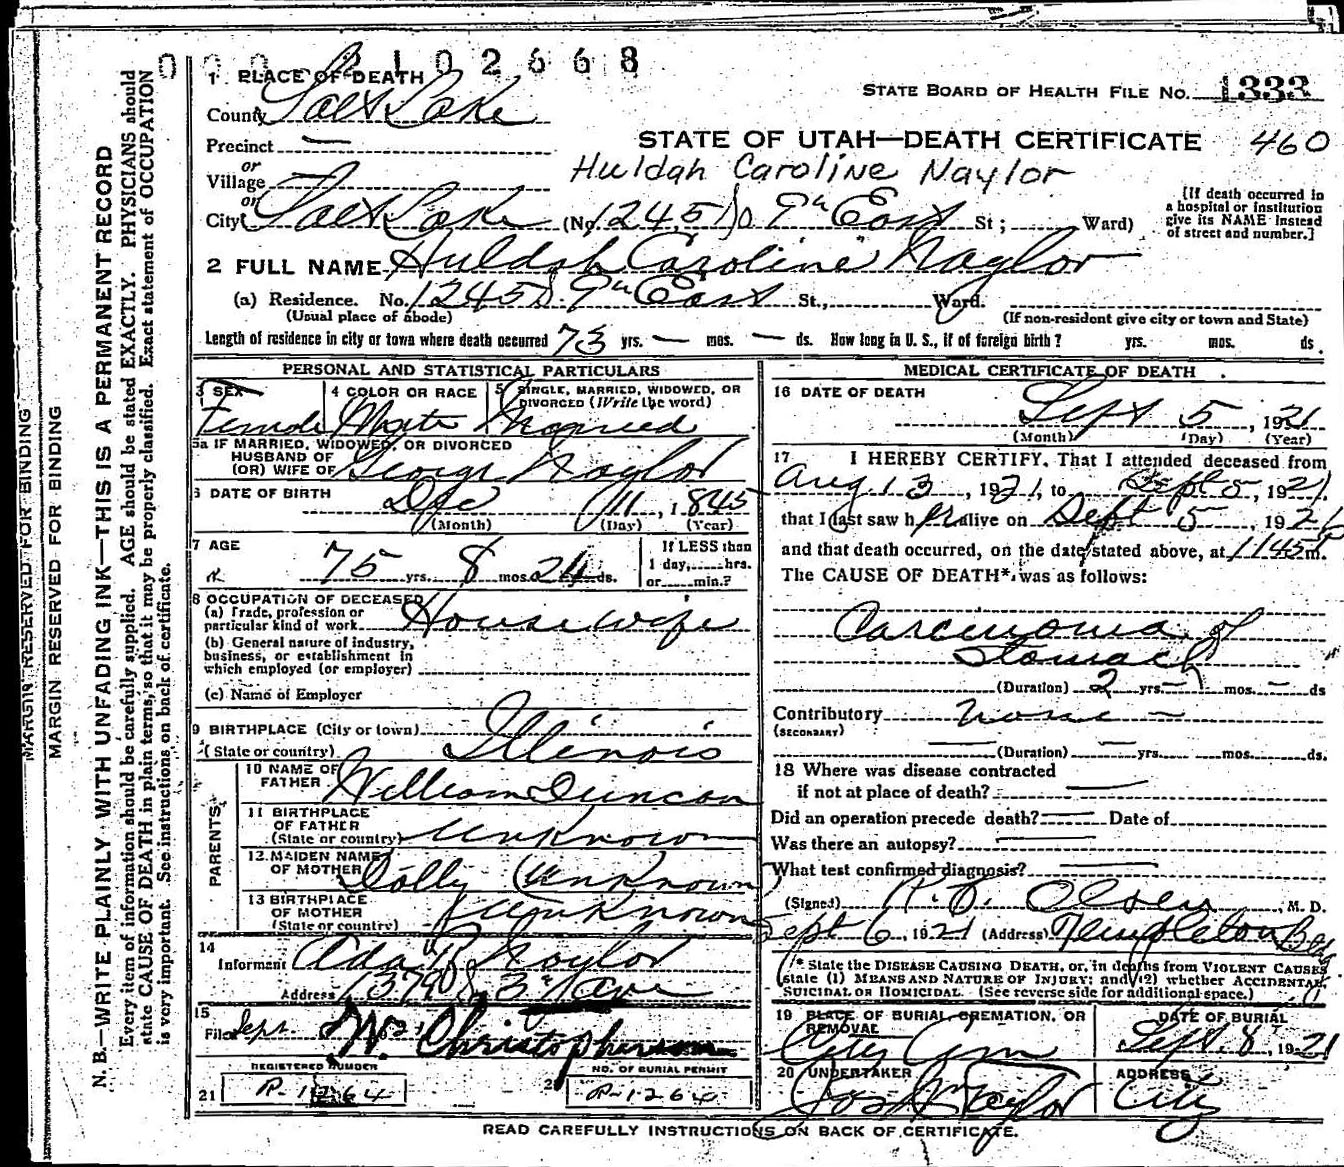 0 0 0 2 1 0 2 6 6 8
1 PLACE OF DEATH
STATE BOARD OF HEALTH FILE NO. 1333
County Salt Lake
STATE OF UTAH—DEATH CERTIFICATE 460
Precinct —
Huldah Caroline Naylor
or
Village
or
City Salt Lake (No. 1245 So 9th East St ; Ward)
[If death occurred in
a hospital or institution
give its NAME instead
of street and number.]
2 FULL NAME Huldah Caroline Naylor
(a) Residence. No. 1245 So. 9th East St., Ward.
(Usual place of abode) (If non-resident give city or town and State)
Length of residence in city or town where death occurred 73 yrs. — mos. — ds. How long in U. S., if of foreign birth ? yrs. mos. ds.
PERSONAL AND STATISTICAL PARTICULARS
3 SEX Female
4 COLOR OR RACE White
5 SINGLE, MARRIED, WIDOWED, OR
DIVORCED (Write the word) Married
5a IF MARRIED, WIDOWED, OR DIVORCED
HUSBAND OF
(OR) WIFE OF George Naylor
6 DATE OF BIRTH Dec 11, 1845
(Month) (Day) (Year)
7 AGE 75 yrs. 8 mos. 24 ds.
If LESS than
1 day, hrs.
or min.?
8 OCCUPATION OF DECEASED
(a) Trade, profession or
particular kind of work Housewife
(b) General nature of industry,
business, or establishment in
which employed (or employer)
(c) Name of Employer
9 BIRTHPLACE (City or town)
(State or country) Illinois
PARENTS
10 NAME OF
FATHER William Duncan
11 BIRTHPLACE
OF FATHER
(State or country) Unknown
12 MAIDEN NAME
OF MOTHER Dolly (Unknown)
13 BIRTHPLACE
OF MOTHER
(State or country) Unknown
14
Informant Naylor
Address
15
Filed Sept. W. Christopherson
REGISTERED NUMBER
21 R-1264
NO. OF BURIAL PERMIT
R-1264
MEDICAL CERTIFICATE OF DEATH
16 DATE OF DEATH
Sept 5, 1921
(Month) (Day) (Year)
17 I HEREBY CERTIFY, That I attended deceased from
Aug 13, 1921, to Sept 5, 1921
that I last saw her alive on Sept 5 1921
and that death occurred, on the date stated above, at 1145 m.
The CAUSE OF DEATH* was as follows:
Carcinoma of
Stomach
(Duration) 2 yrs. — mos. — ds
Contributory none —
(SECONDARY)
— (Duration) — yrs. mos. ds.
18 Where was disease contracted
if not at place of death? —
Did an operation precede death? — Date of
Was there an autopsy? —
What test confirmed diagnosis? —
(Signed) Olsen, M. D.
Sept 6, 1921 (Address) Templeton
* State the DISEASE CAUSING DEATH, or, in deaths from VIOLENT CAUSES
state (1) MEANS AND NATURE OF INJURY; and (2) whether ACCIDENTAL,
SUICIDAL OR HOMICIDAL. (See reverse side for additional space.)
19 PLACE OF BURIAL, CREMATION, OR
REMOVAL
City Cem
DATE OF BURIAL
Sept. 8, 1921
20 UNDERTAKER
Jos Wm Taylor
ADDRESS
City
READ CAREFULLY INSTRUCTIONS ON BACK OF CERTIFICATE.
MARGIN RESERVED FOR BINDING
MARGIN RESERVED FOR BINDING
N. B.—WRITE PLAINLY WITH UNFADING INK—THIS IS A PERMANENT RECORD
Every item of information should be carefully supplied. AGE should be stated EXACTLY. PHYSICIANS should
state CAUSE OF DEATH in plain terms, so that it may be properly classified. Exact statement of OCCUPATION
is very important. See instructions on back of certificate.